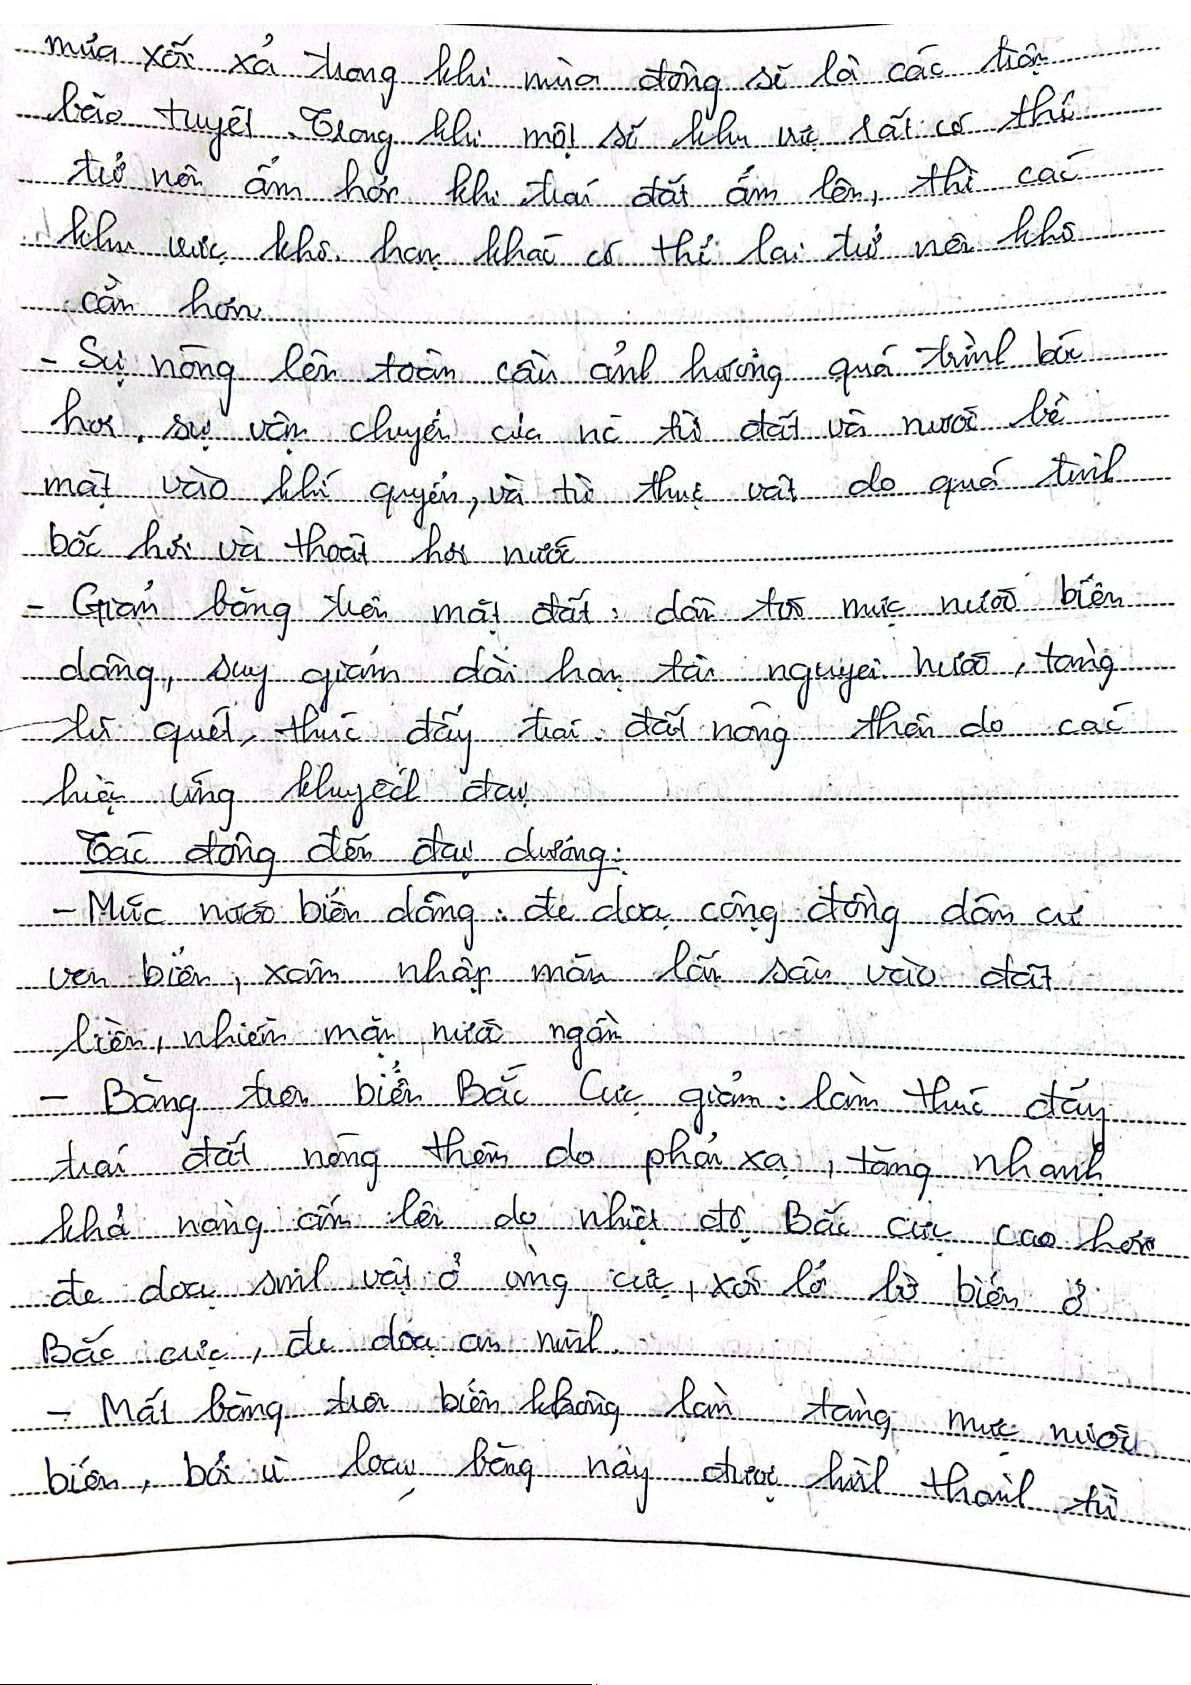 mưa xối xả trong khi mùa đông sẽ là các trận
bão tuyết. Trong khi một số khu vực rất có thể
trở nên ấm hơn khi trái đất ấm lên, thì các
khu vực khô hạn khác có thể lại trở nên khô
cằn hơn
- Sự nóng lên toàn cầu ảnh hưởng quá trình bốc
hơi, sự vận chuyển của nc từ đất và nước bề
mặt vào khí quyển, và từ thực vật do quá trình
bốc hơi và thoát hơi nước
- Giảm băng trên mặt đất: dẫn tới mực nước biển
dâng, suy giảm dài hạn tài nguyên nước, tăng
lũ quét, thúc đẩy trái đất nóng thêm do các
hiện ứng khuyếch đại
Tác động đến đại dương:
- Mức nước biển dâng: đe dọa cộng đồng dân cư
ven biển, xâm nhập mặn lấn sâu vào đất
liền, nhiễm mặn nước ngầm
- Băng trên biển Bắc Cực giảm: làm thúc đẩy
trái đất nóng thêm do phản xạ, tăng nhanh
khả năng ấm lên do nhiệt độ Bắc cực cao hơn
đe dọa sinh vật ở vùng cực, xói lở bờ biển ở
Bắc cực, đe dọa an ninh.
- Mất băng trên biển không làm tăng mực nước
biển, bởi vì loại băng này được hình thành từ